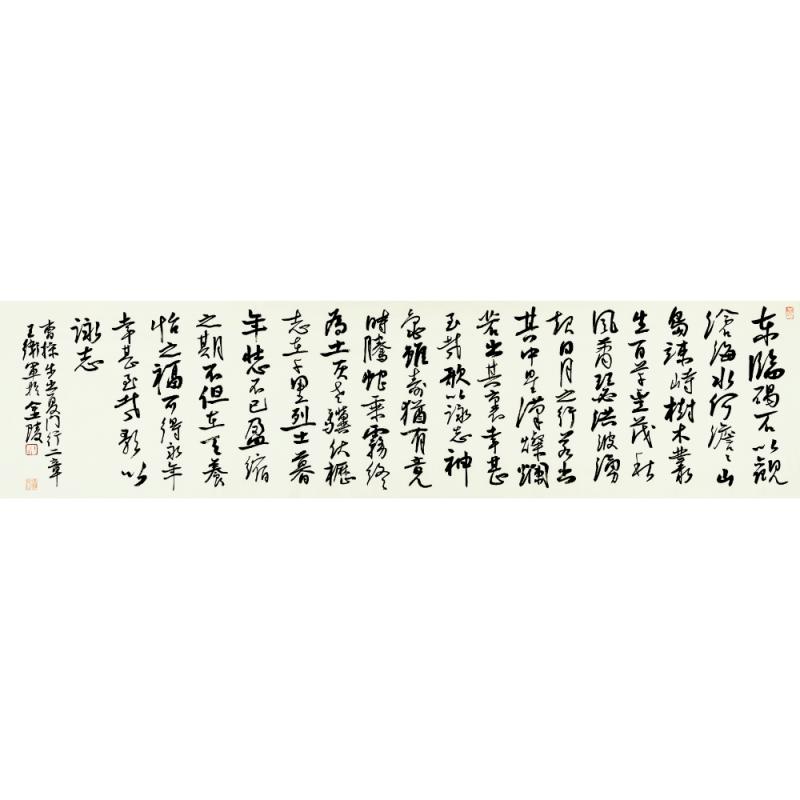 东臨碣石以觀
滄海水何澹澹山
島竦峙樹木叢
生百草豐茂秋
風蕭瑟洪波湧
起日月之行若出
其中星漢燦爛
若出其裏幸甚
至哉歌以詠志神
龜雖壽猶有竟
時騰蛇乘霧終
為土灰老驥伏櫪
志在千里烈士暮
年壯心不已盈縮
之期不但在天養
怡之福可得永年
幸甚至哉歌以
詠志
曹操步出夏门行二章
王衛軍於金陵